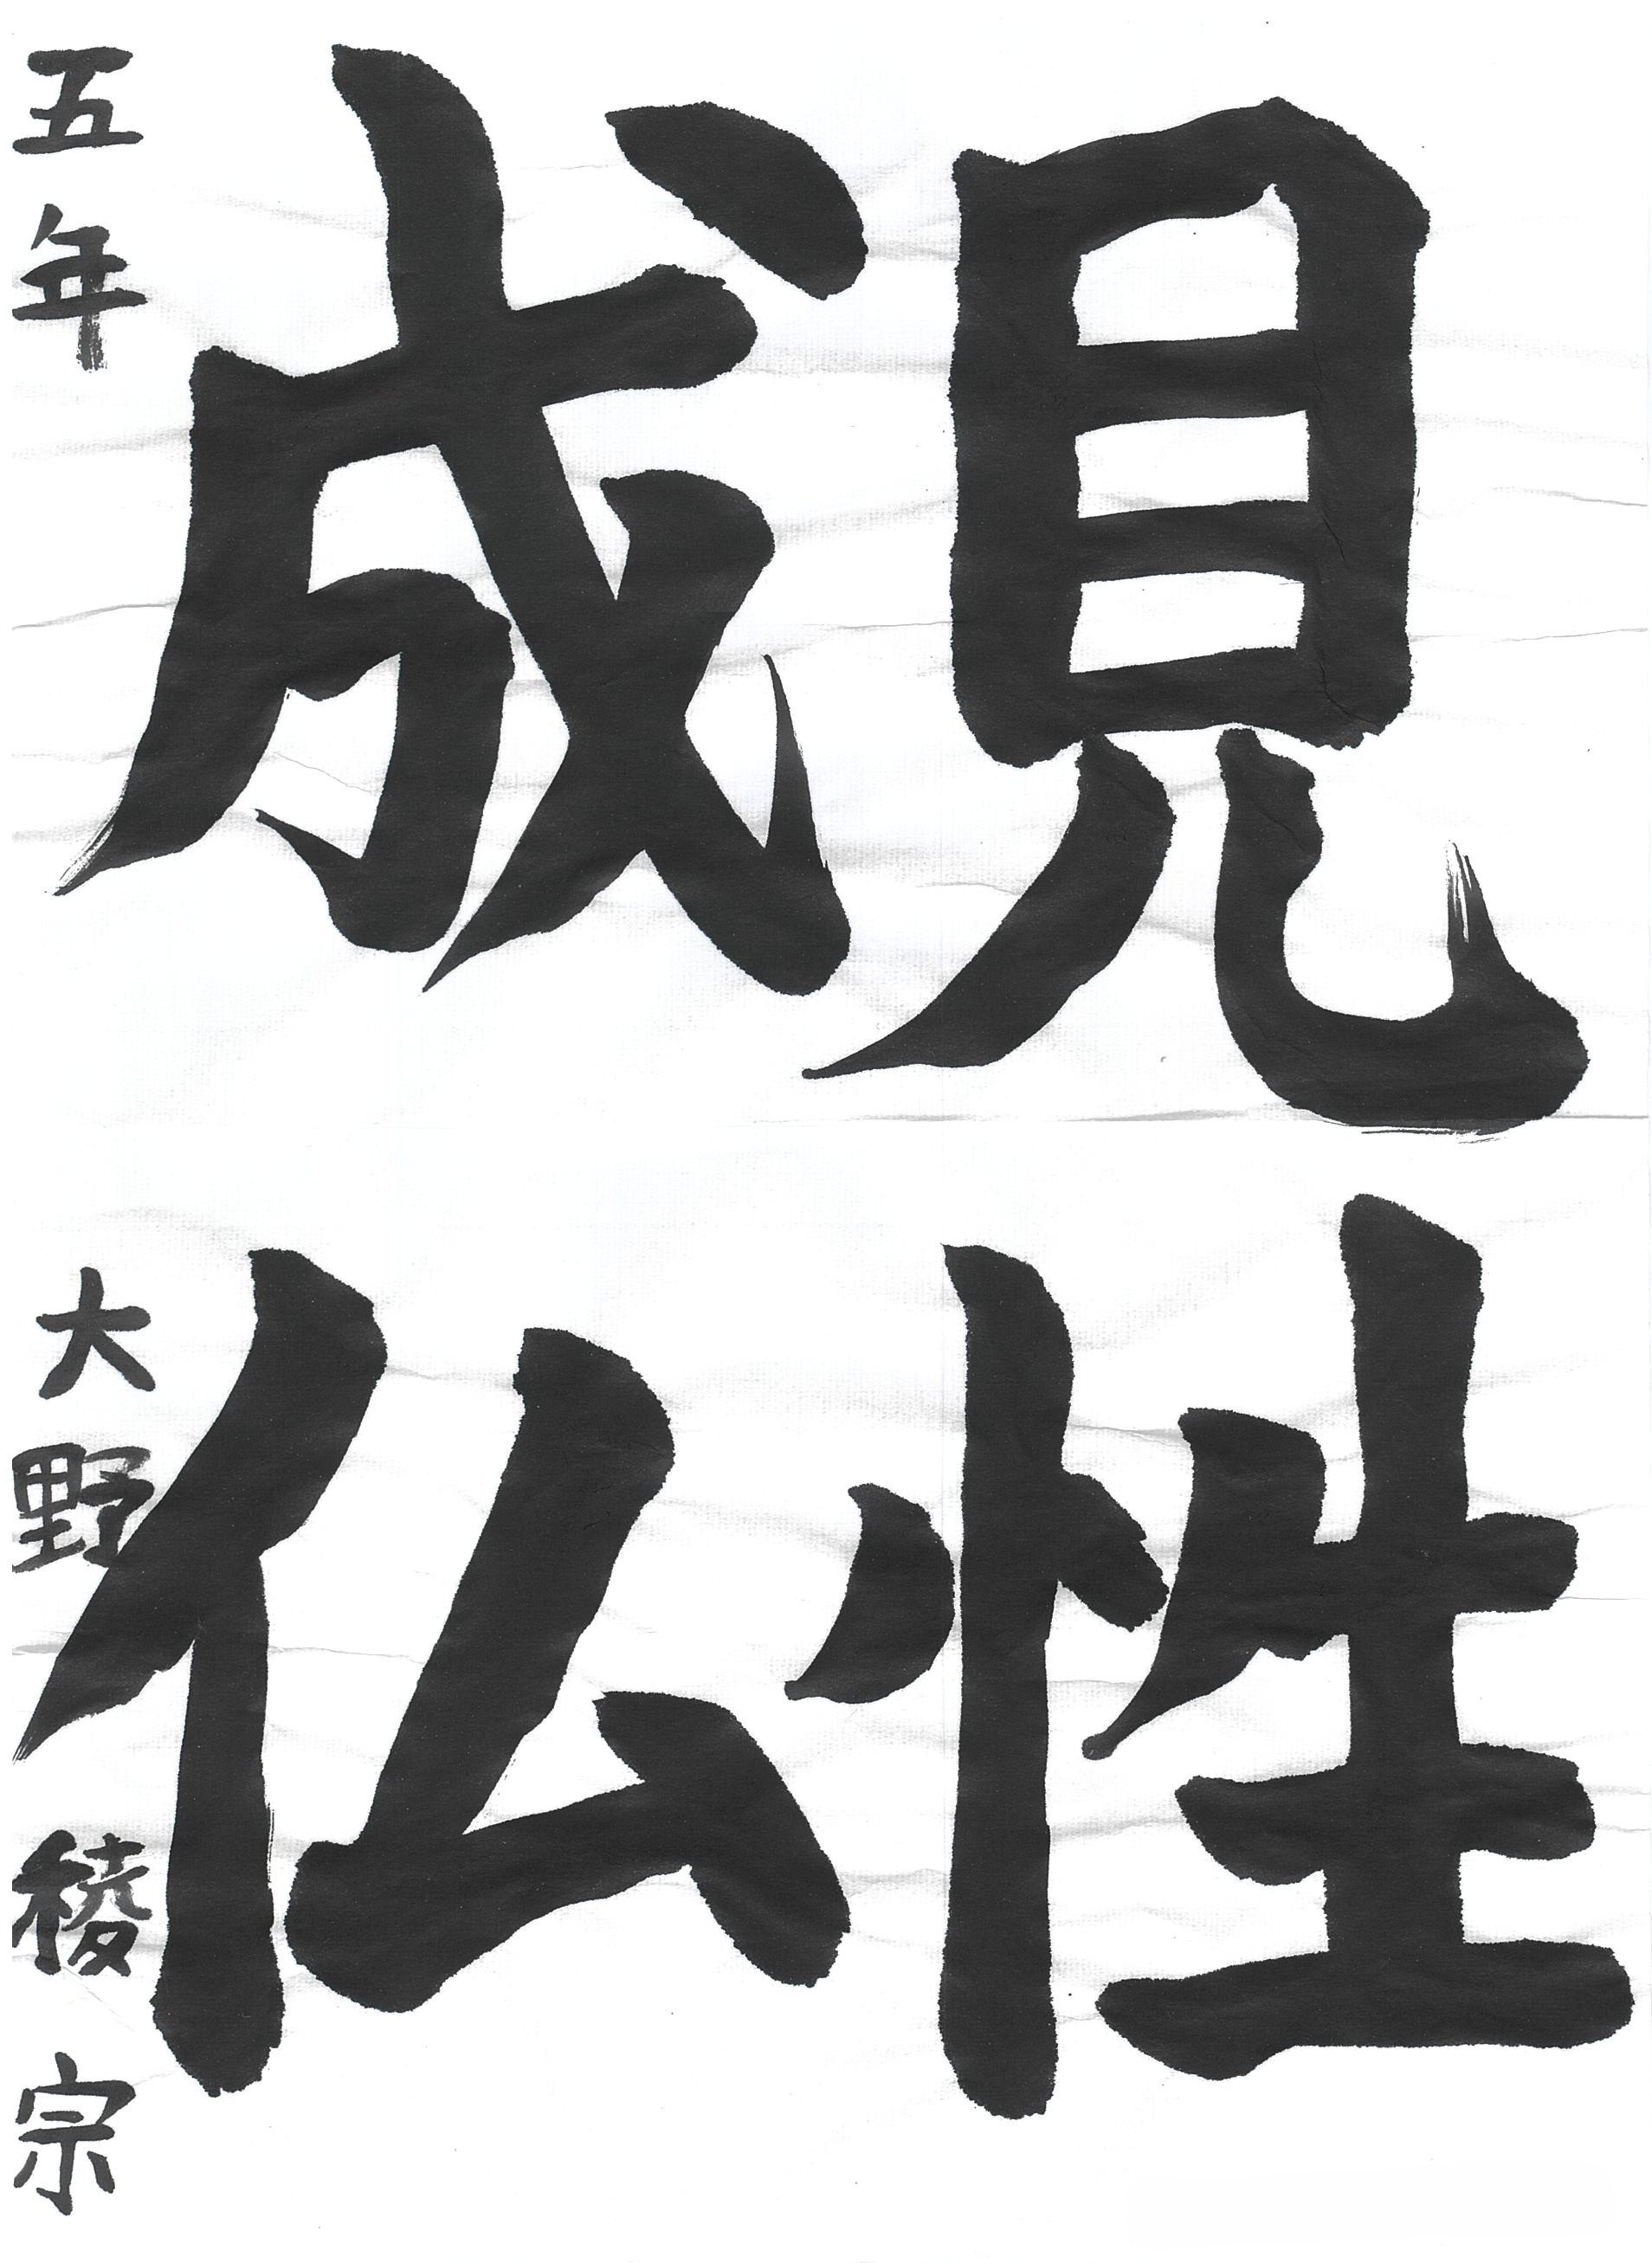 見性
成仏
五年 大野 稜宗